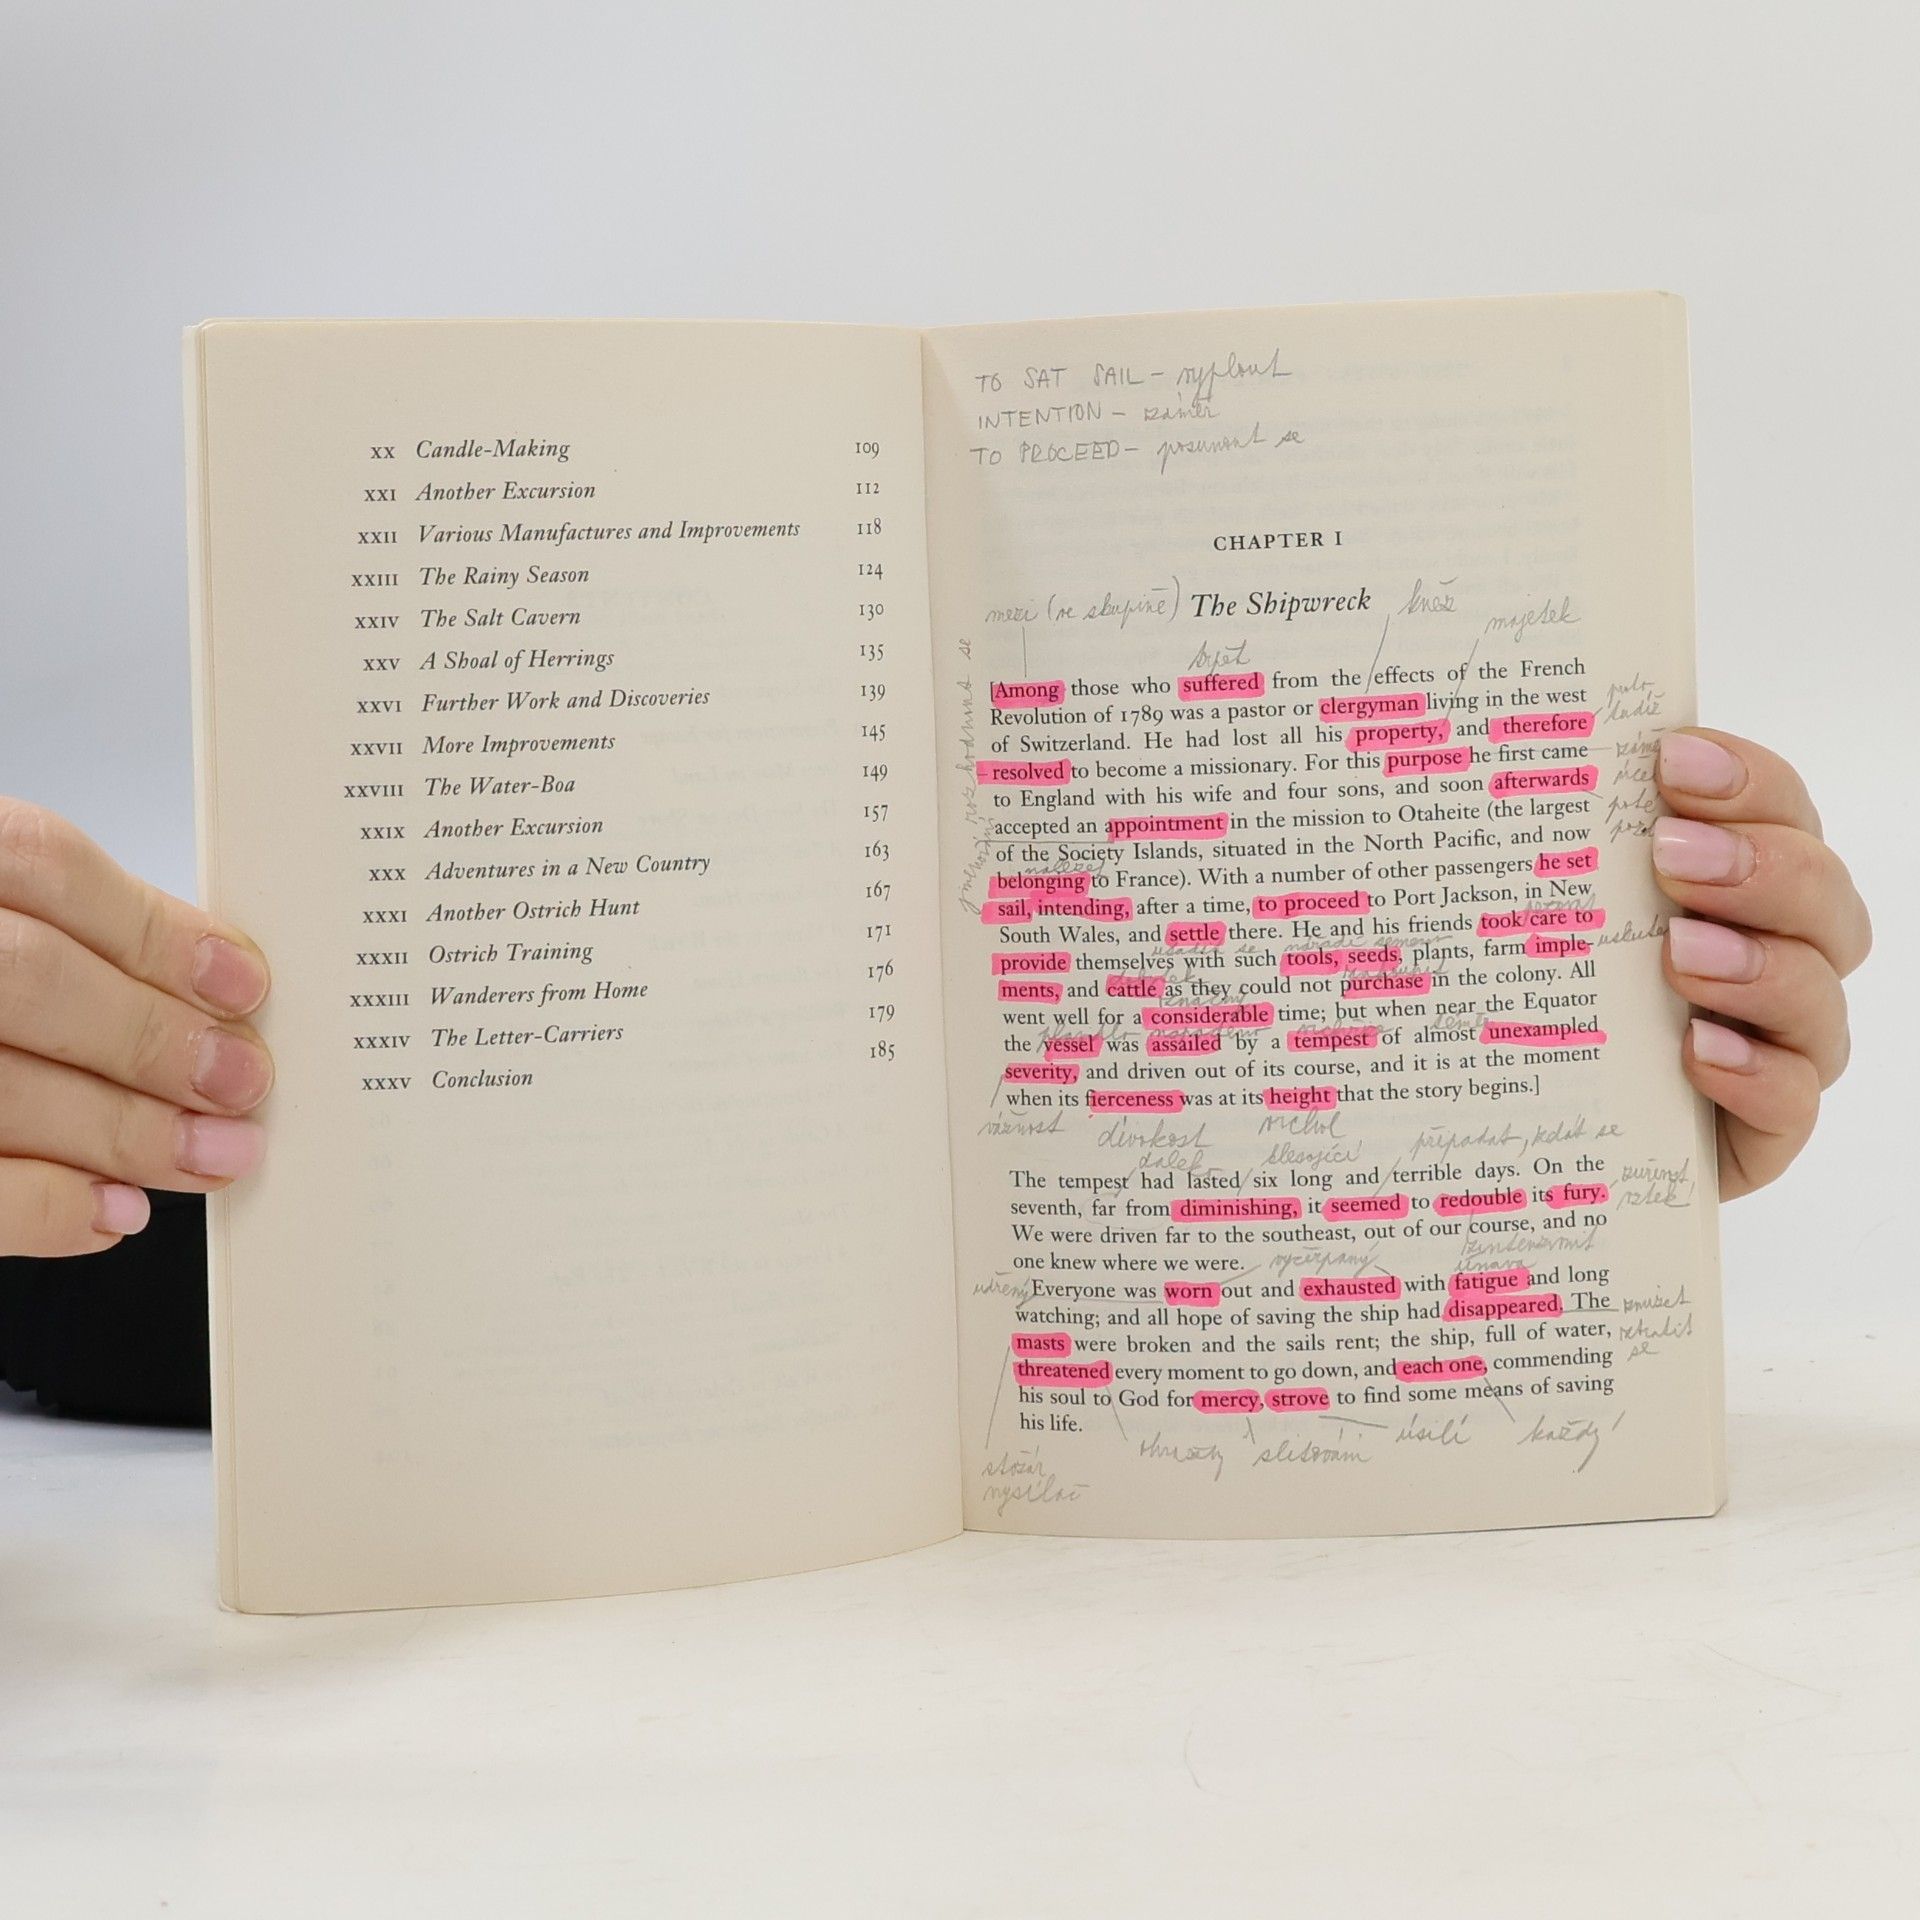 XX Candle-Making 109
XXI Another Excursion 112
XXII Various Manufactures and Improvements 118
XXIII The Rainy Season 124
XXIV The Salt Cavern 130
XXV A Shoal of Herrings 135
XXVI Further Work and Discoveries 139
XXVII More Improvements 145
XXVIII The Water-Boa 149
XXIX Another Excursion 157
XXX Adventures in a New Country 163
XXXI Another Ostrich Hunt 167
XXXII Ostrich Training 171
XXXIII Wanderers from Home 176
XXXIV The Letter-Carriers 179
XXXV Conclusion 185
TO SAT SAIL – vyplout
INTENTION – záměr
TO PROCEED – posunout se
CHAPTER I
mezi (ve skupině) The Shipwreck kněz
majetek
trpět
[Among those who suffered from the effects of the French
Revolution of 1789 was a pastor or clergyman living in the west
of Switzerland. He had lost all his property, and therefore
resolved to become a missionary. For this purpose he first came
to England with his wife and four sons, and soon afterwards
accepted an appointment in the mission to Otaheite (the largest
of the Society Islands, situated in the North Pacific, and now
belonging to France). With a number of other passengers he set
sail, intending, after a time, to proceed to Port Jackson, in New
South Wales, and settle there. He and his friends took care to
usadit se nářadí semena
provide themselves with such tools, seeds, plants, farm imple-
ments, and cattle as they could not purchase in the colony. All
značný
went well for a considerable time; but when near the Equator
the vessel was assailed by a tempest of almost unexampled
severity, and driven out of its course, and it is at the moment
when its fierceness was at its height that the story begins.]
vážnost divokost vrchol
daleko klesající připadat, zdát se
The tempest had lasted six long and terrible days. On the
seventh, far from diminishing, it seemed to redouble its fury.
zuřivost
vztek
We were driven far to the southeast, out of our course, and no
one knew where we were. vyčerpaný
zintenzivnit
únava
udřený
Everyone was worn out and exhausted with fatigue and long
watching; and all hope of saving the ship had disappeared. The
zmizet
ztratit
se
masts were broken and the sails rent; the ship, full of water,
threatened every moment to go down, and each one, commending
his soul to God for mercy, strove to find some means of saving
his life.
slitování úsilí každý
stožár
vysílač